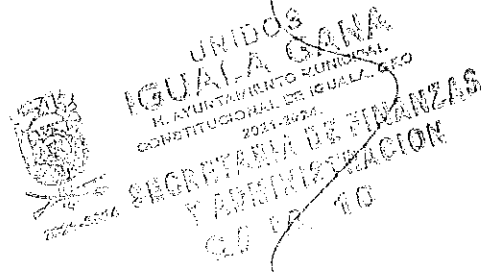 UNIDOS
IGUALA GANA
H. AYUNTAMIENTO MUNICIPAL
CONSTITUCIONAL DE IGUALA, GRO
2021-2024.
SECRETARIA DE FINANZAS
Y ADMINISTRACION